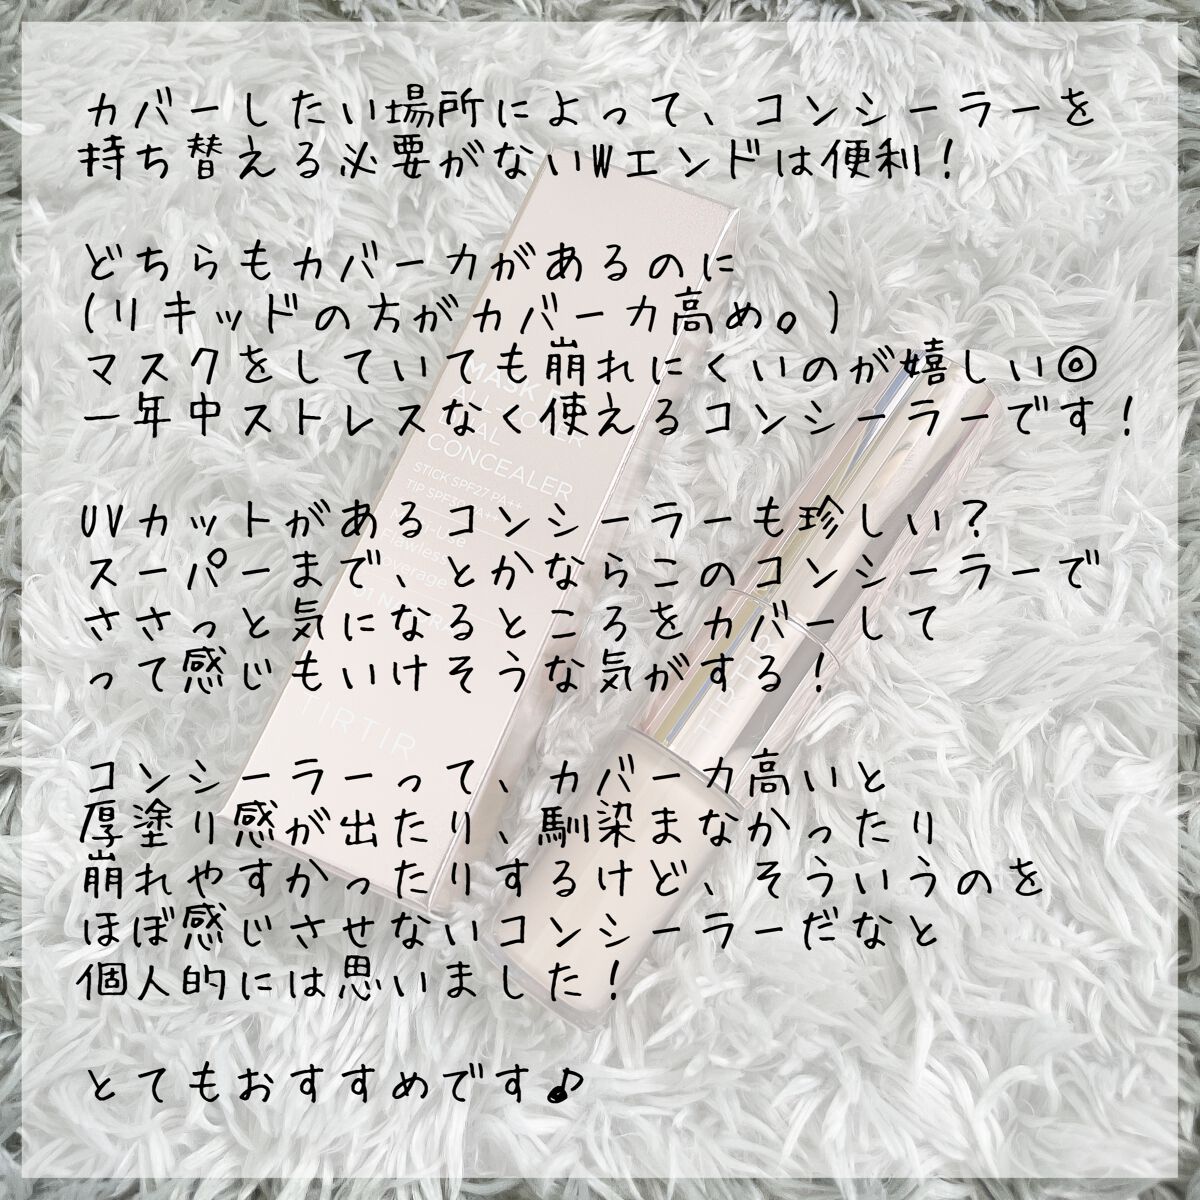 カバーしたい場所によって、コンシーラーを
持ち替える必要がないWエンドは便利！
どちらもカバー力があるのに
(リキッドの方がカバー力高め。)
マスクをしていても崩れにくいのが嬉しい◎
一年中ストレスなく使えるコンシーラーです！
UVカットがあるコンシーラーも珍しい？
スーパーまで、とかならこのコンシーラーで
ささっと気になるところをカバーして
って感じもいけそうな気がする！
コンシーラーって、カバー力高いと
厚塗り感が出たり、馴染まなかったり
崩れやすかったりするけど、そういうのを
ほぼ感じさせないコンシーラーだなと
個人的には思いました！
とてもおすすめです♪
MASK
ALL-COVER
DUAL
CONCEALER
STICK SPF27 PA++
TIP SPF30
Flawless
Coverage
01
TIRTIR
TIRTIR